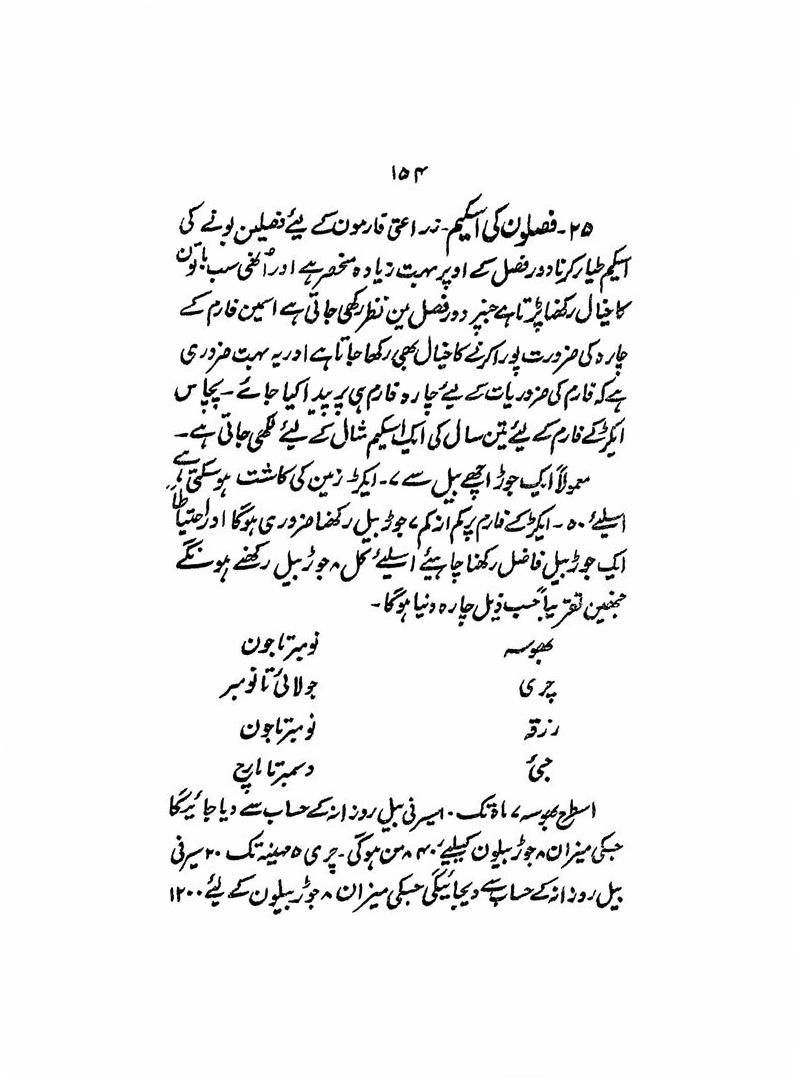 ۱۵۴
۲۵۔ فصلون کی اسکیم۔ زراعتی فارمون کے لیئے فصلین بونے کی
اسکیم طیار کرنا دور فصل کے اوپر بہت زیادہ منحصر ہے اور اُنھی سب باتون
کا خیال رکھنا پڑتا ہے جنپر دور فصل مین نظر رکھی جاتی ہے اسمین فارم کے
چارہ کی ضرورت پورا کرنے کا خیال بھی رکھا جاتا ہے اور یہ بہت ضروری
ہے کہ فارم کی ضروریات کے لیئے چارہ فارم ہی پر پیدا کیا جائے۔ پچاس
ایکڑ کے فارم کے لیئے تین سال کی ایک اسکیم مثال کے لیئے لکھی جاتی ہے۔
معمولاً ایک جوڑ اچھے بیل سے ۷۔ ایکڑ زمین کی کاشت ہو سکتی ہے
اسلیئے ۵۰۔ ایکڑ کے فارم پر کم از کم ۷ جوڑ بیل رکھنا ضروری ہوگا اور احتیاطاً
ایک جوڑ بیل فاضل رکھنا چاہیئے اسلیئے کل ۸ جوڑ بیل رکھنے ہونگے
جنھین تقریباً حسب ذیل چارہ دنیا ہوگا۔
بھوسہ نومبر تا جون
چری جولائی تا نومبر
رزقہ نومبر تا جون
جئ دسمبر تا مارچ
اسطرح بھوسہ ۷ ماہ تک ۱۰ سیر فی بیل روزانہ کے حساب سے دیا جائیگا
جسکی میزان ۸ جوڑ بیلون کیلیئے ۸۴۰ من ہوگی۔ چری ۵ مہینہ تک ۲۰ سیر فی
بیل روزانہ کے حساب سے دیجائیگی جسکی میزان ۸ جوڑ بیلون کے لیئے ۱۲۰۰